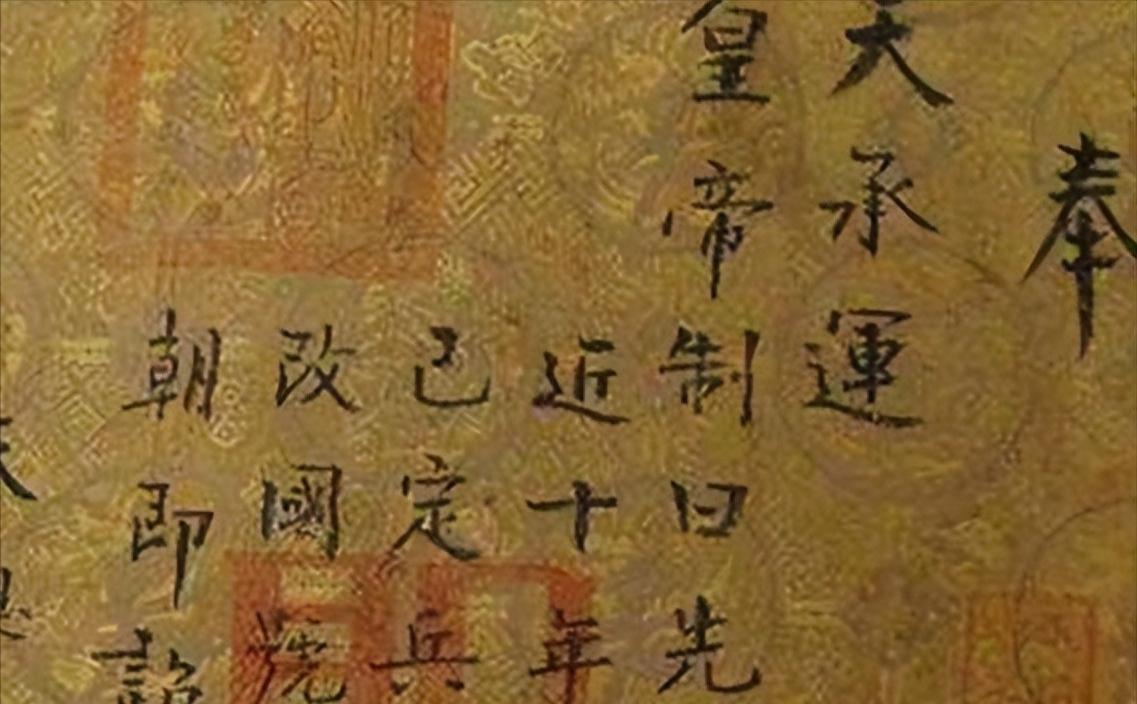 奉
天承運
皇帝制曰先
近十年
已定兵
改國號
朝即詔